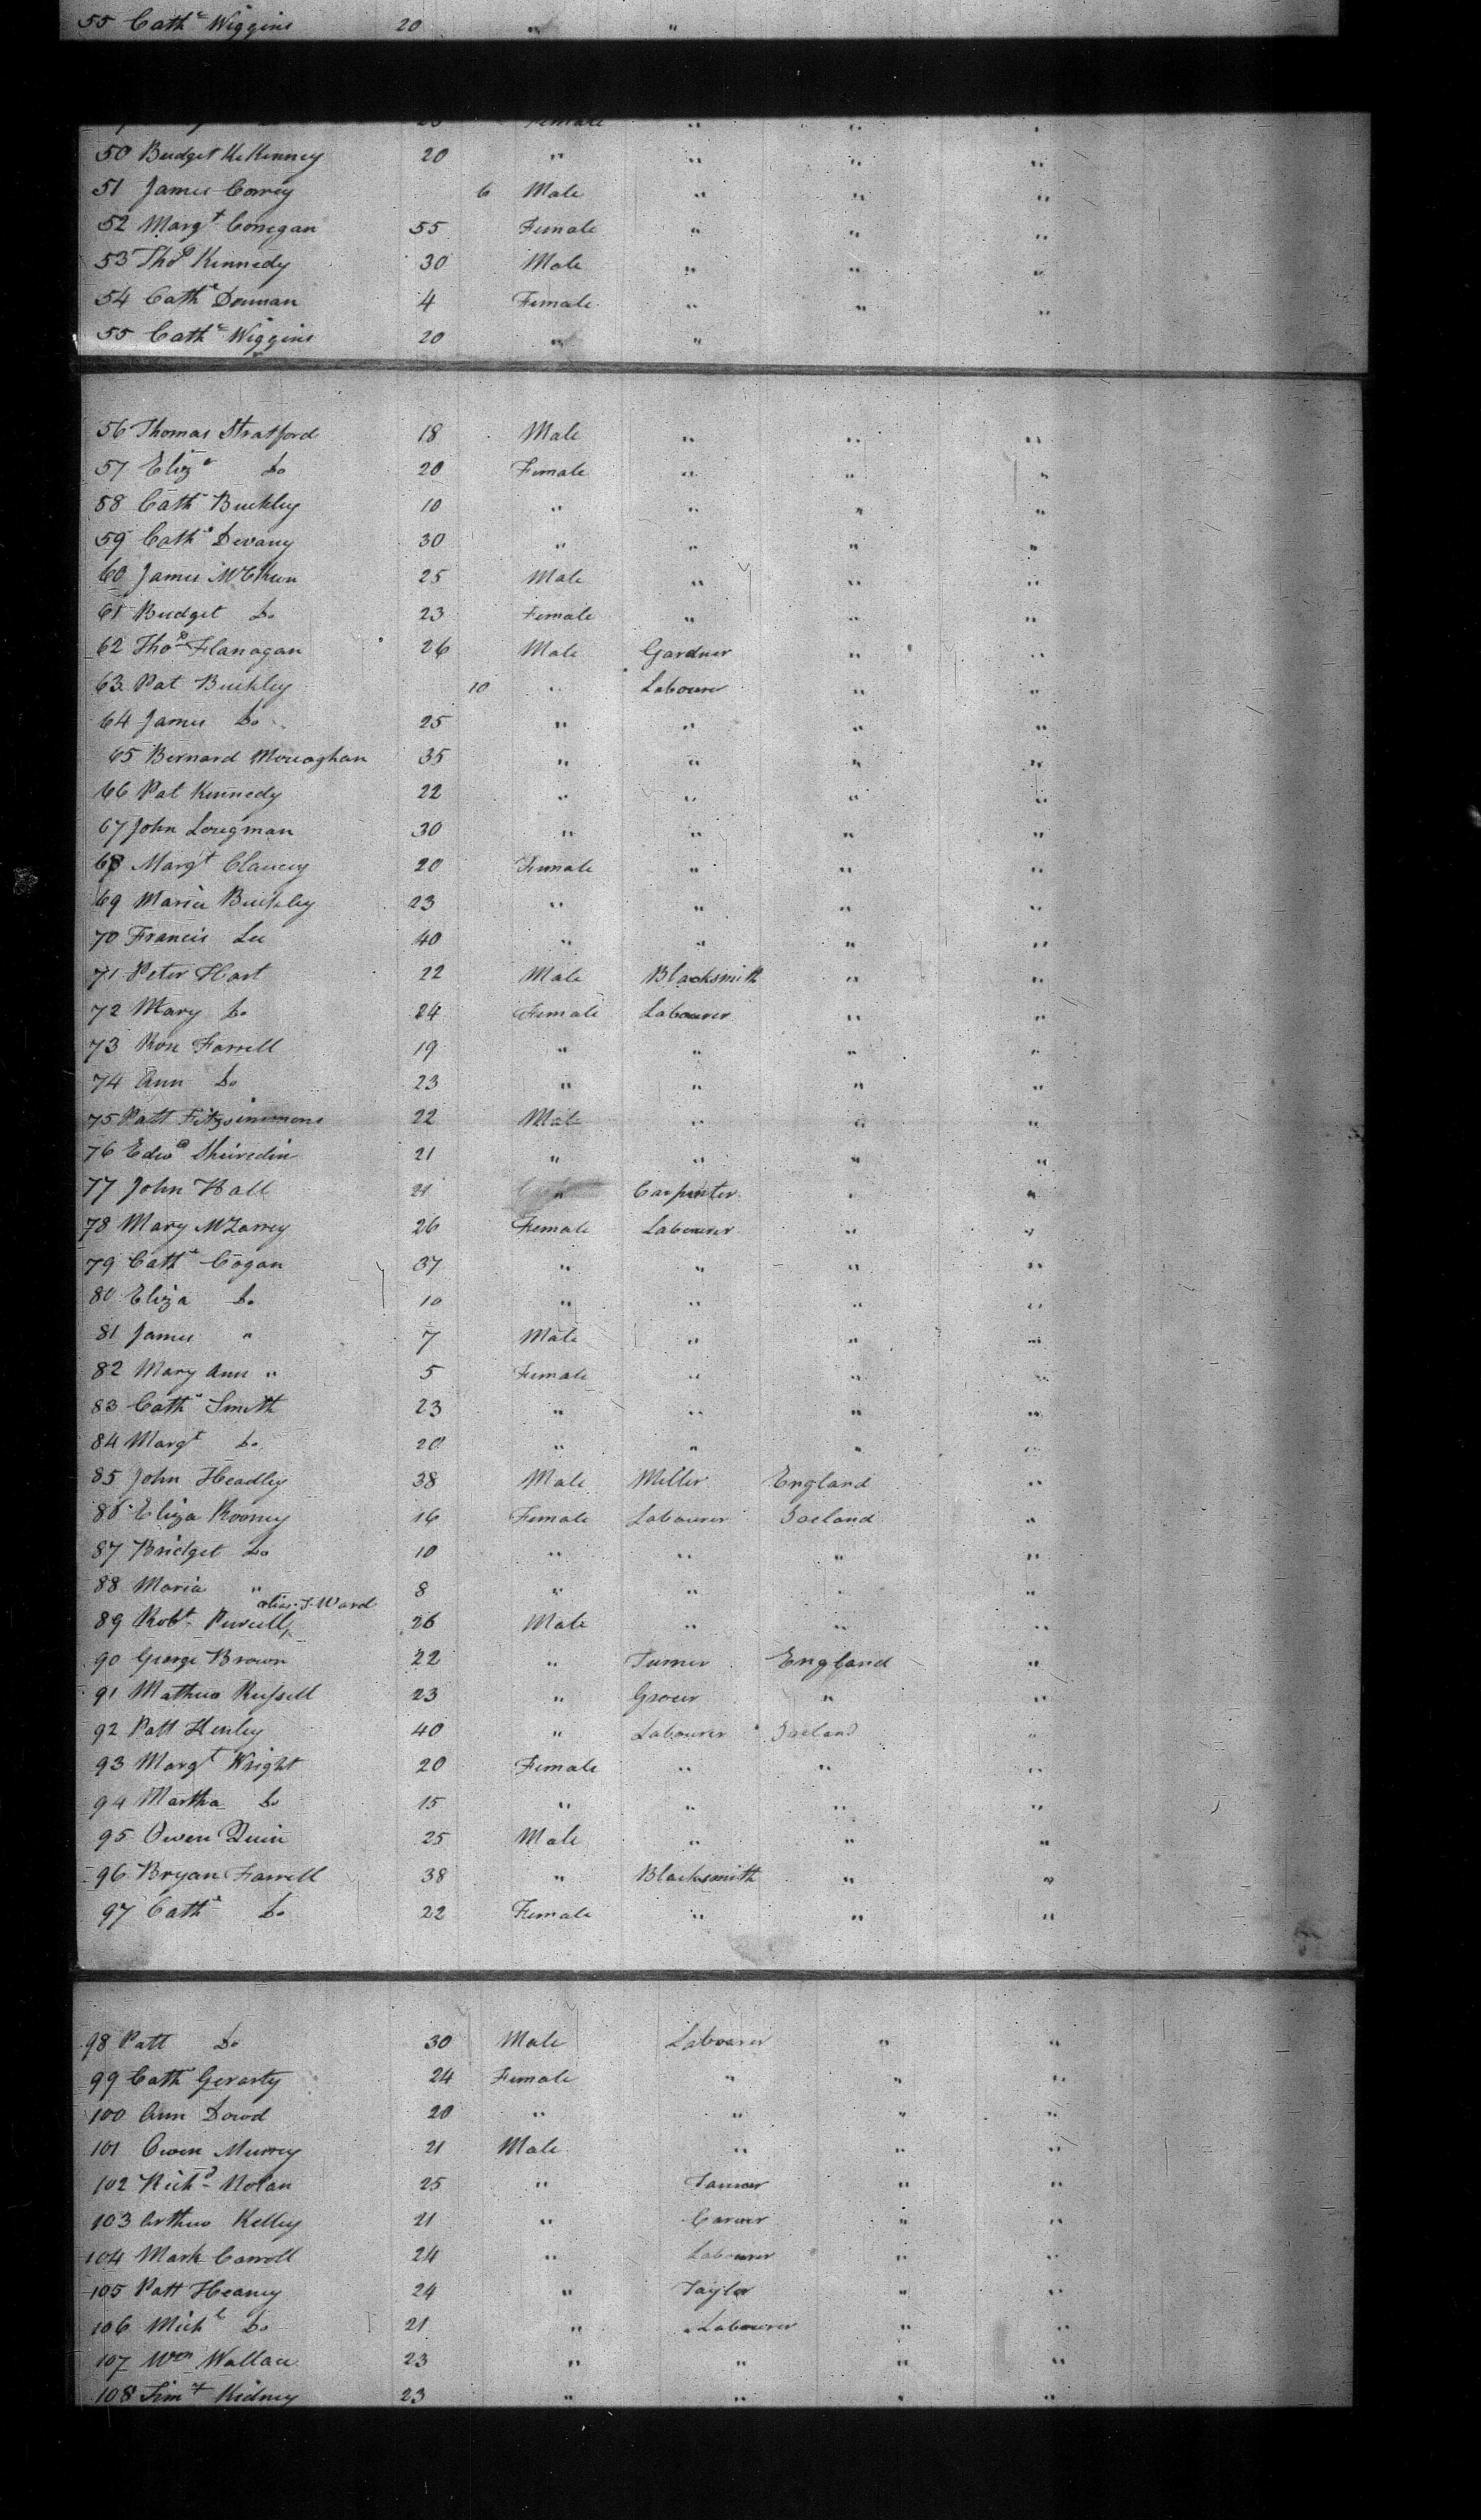 55 Cathe Wiggins 20 " "
Female " " "
50 Bridget McKenney 20 " " " "
51 James Correy 6 Male " " "
52 Margt Corregan 55 Female " " "
53 Thos Kennedy 30 Male " " "
54 Cathe Dounan 4 Female " " "
55 Cathe Wiggins 20 " "
56 Thomas Stratford 18 Male " " "
57 Eliza Do 20 Female " " "
58 Cath Buckley 10 " " " "
59 Cathe Devany 30 " " " "
60 James McKeon 25 Male " " "
61 Bridget Do 23 Female " " "
62 Thos Flanagan 26 Male Gardner " "
63 Pat Buckley 10 " Labourer " "
64 James Do 25 " " " "
65 Bernard Monaghan 35 " " " "
66 Pat Kennedy 22 " " " "
67 John Longman 30 " " " "
68 Margt Clancey 20 Female " " "
69 Maria Buckley 23 " " " "
70 Francis Lee 40 " " " "
71 Peter Hart 22 Male Blacksmith " "
72 Mary Do 24 Female Labourer " "
73 Rose Farrell 19 " " " "
74 Ann Do 23 " " " "
75 Patt Fitzsimmons 22 Male " " "
76 Edwd Sheiredin 21 " " " "
77 John Hall 21 " Carpenter " "
78 Mary McLarrey 26 Female Labourer " "
79 Cathe Cogan 37 " " " "
80 Eliza Do 10 " " " "
81 James " 7 Male " " "
82 Mary Ann " 5 Female " " "
83 Cathe Smith 23 " " " "
84 Margt Do 20 " " " "
85 John Headley 38 Male Miller England "
86 Eliza Rooney 16 Female Labourer Ireland "
87 Bridget Do 10 " " " "
88 Maria " 8 " " " "
alias J. Ward
89 Robt Purcell 26 Male " " "
90 George Brown 22 " Turner England "
91 Mathew Russell 23 " Grocer " "
92 Patt Henley 40 " Labourer Ireland "
93 Margt Wright 20 Female " " "
94 Martha Do 15 " " " "
95 Owen Quin 25 Male " " "
96 Bryan Farrell 38 " Blacksmith " "
97 Cathe Do 22 Female " " "
98 Patt Do 30 Male Labourer " "
99 Cath Gerarty 24 Female " " "
100 Ann Dowd 20 " " " "
101 Owen Murrey 21 Male " " "
102 Richd Nolan 25 " Tanner " "
103 Arthur Kelley 21 " Carver " "
104 Mark Carroll 24 " Labourer " "
105 Patt Heaney 24 " Taylor " "
106 Michl Do 21 " Labourer " "
107 Wm Wallace 23 " " " "
108 Timy Kidney 23 " " " "